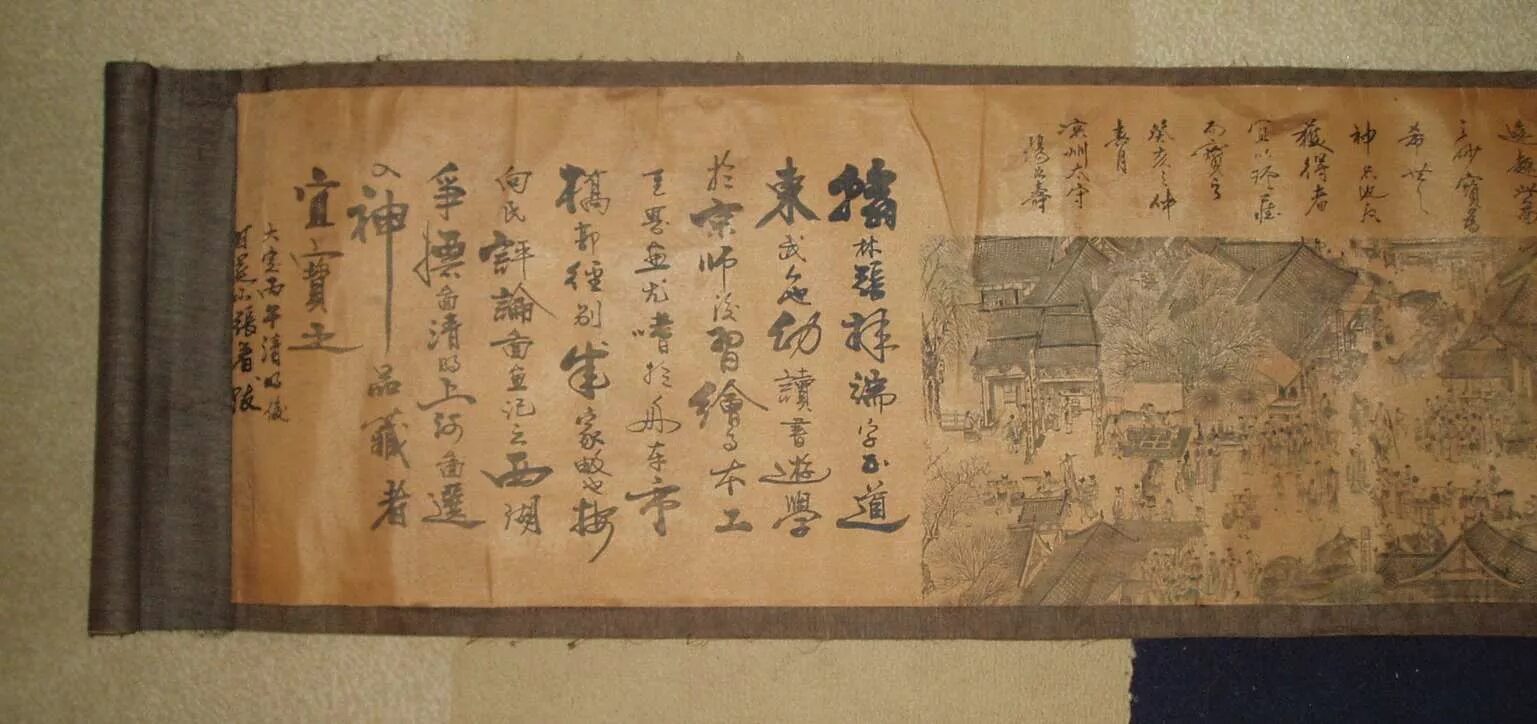 之妙寶為
希世之
獲得者
宜以珍藏
而寶之
癸亥之仲
春月
州太守
壽
翰林張擇端字正道
東武人也幼讀書遊學
於京師後習繪事本工
其界畫尤嗜於舟車市
橋郭徑別成家數也按
向氏評論圖畫記云西湖
爭標圖清明上河圖選
入神品藏者
宜寶之
大定丙午清明後
山張著跋